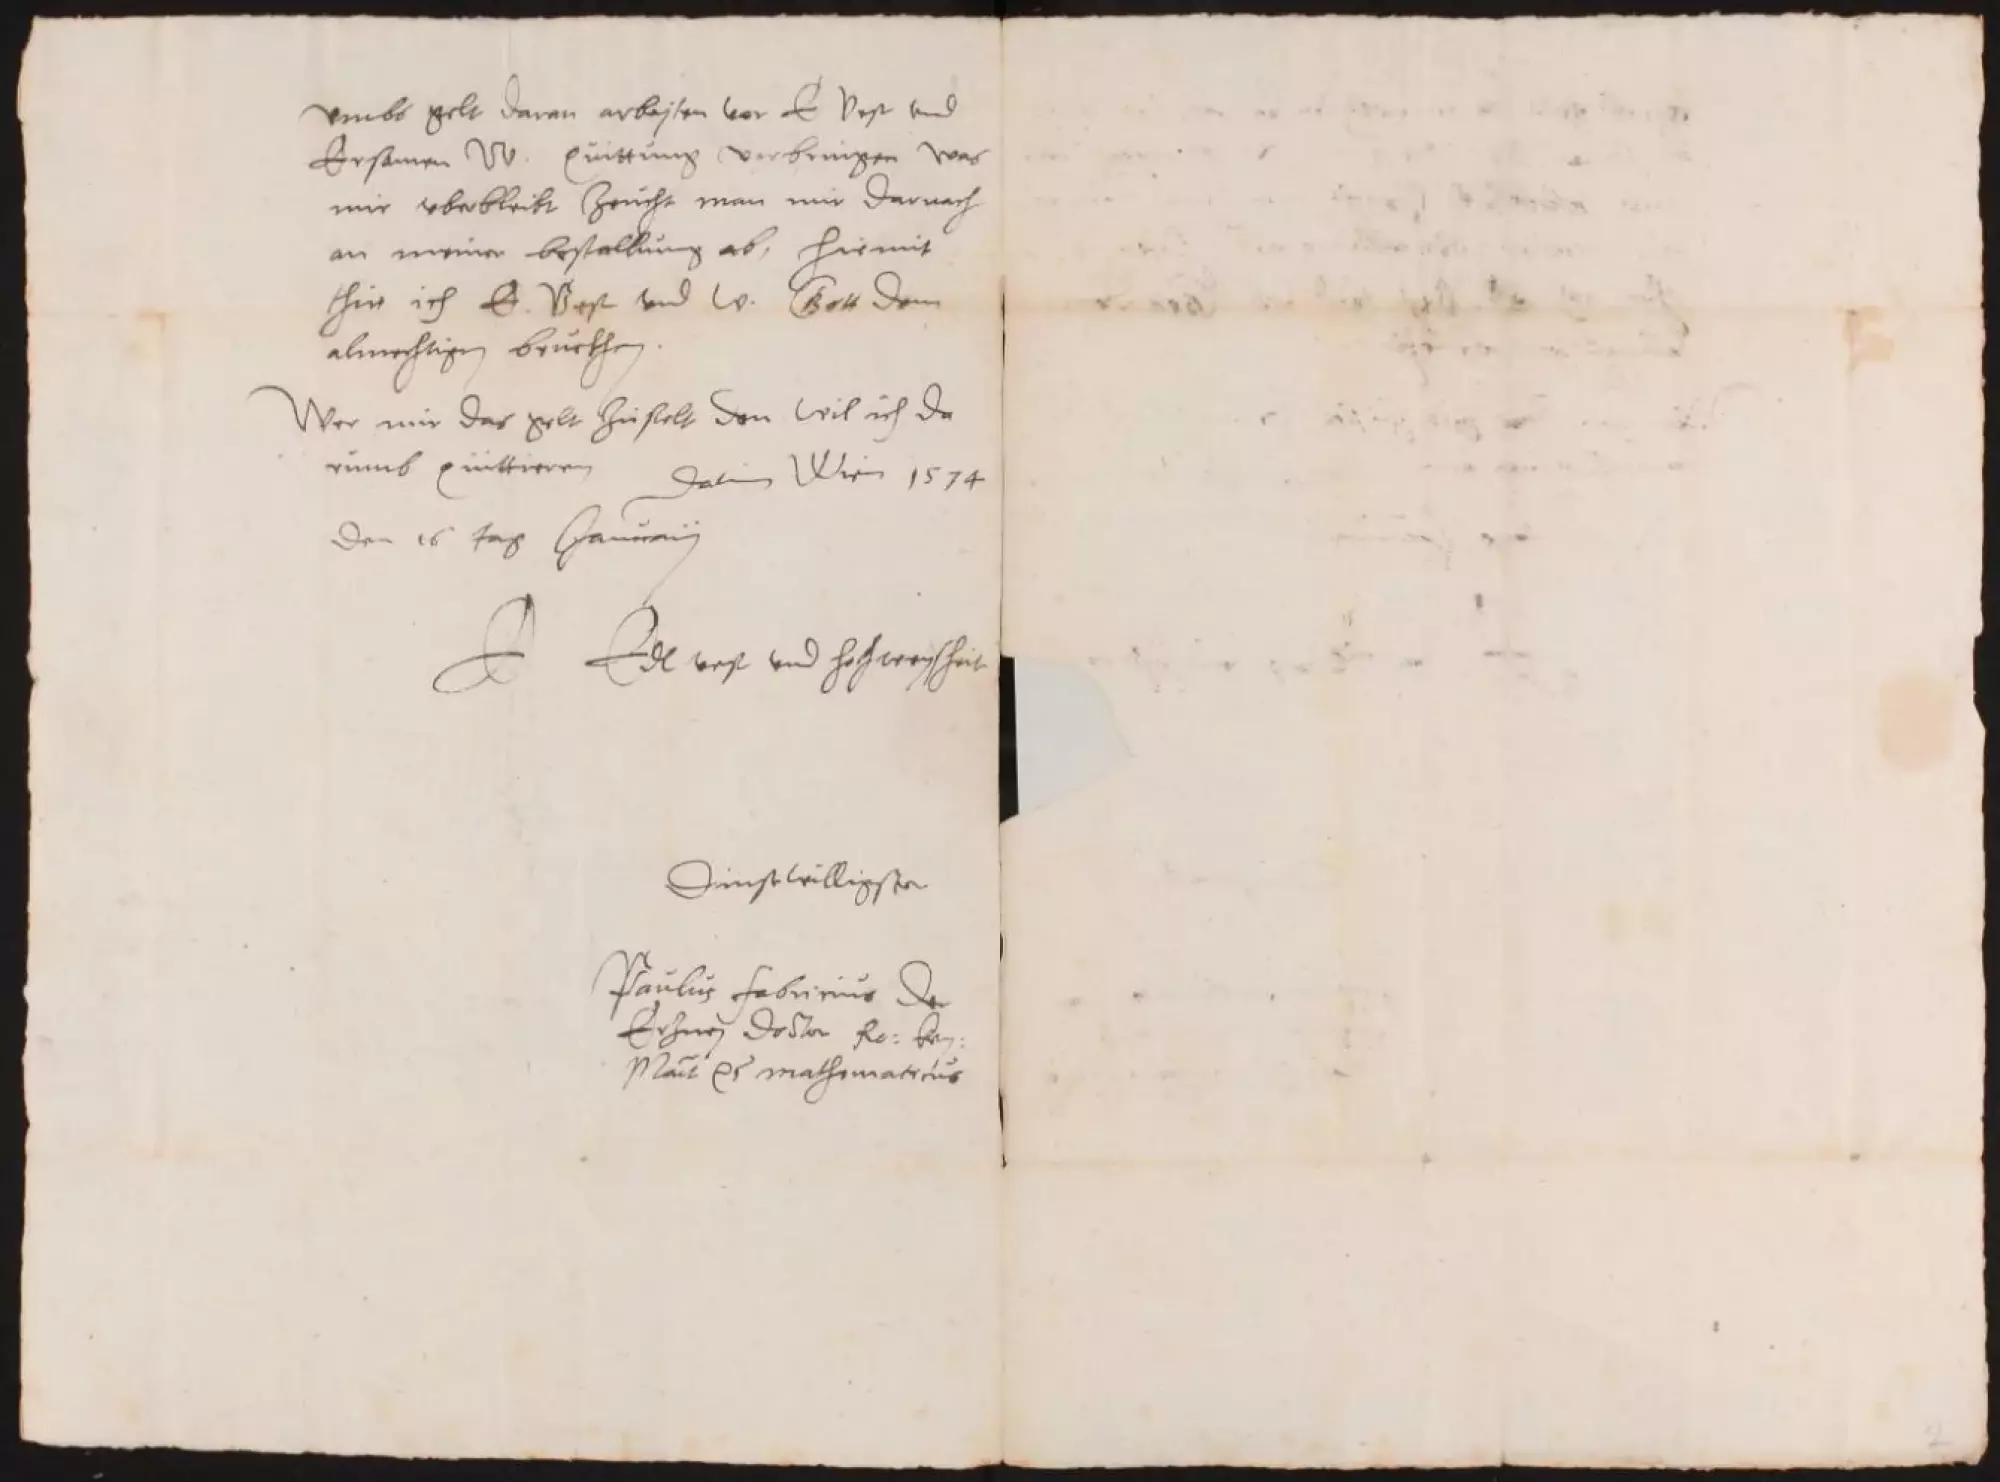 vmbs gelt daran arbeÿten vor E Vest vnd
Ersamen W. quittung verbringen was
mir vberbleibt zeucht man mir darnach
an meiner bestallung ab, hiemit
thue ich E. Vest vnd W. Gott dem
almechtigen
Wer mir das gelt zustelt den wil ich da
rumb quittieren Datum Wien 1574
den 16 tag Januarij
E Edl vest vnd hochweÿsheit
Dinstwilligster
Paulus Fabricius der
Ertzneÿ Doctor Ro: Keÿ:
Maÿt etc mathematicus
2